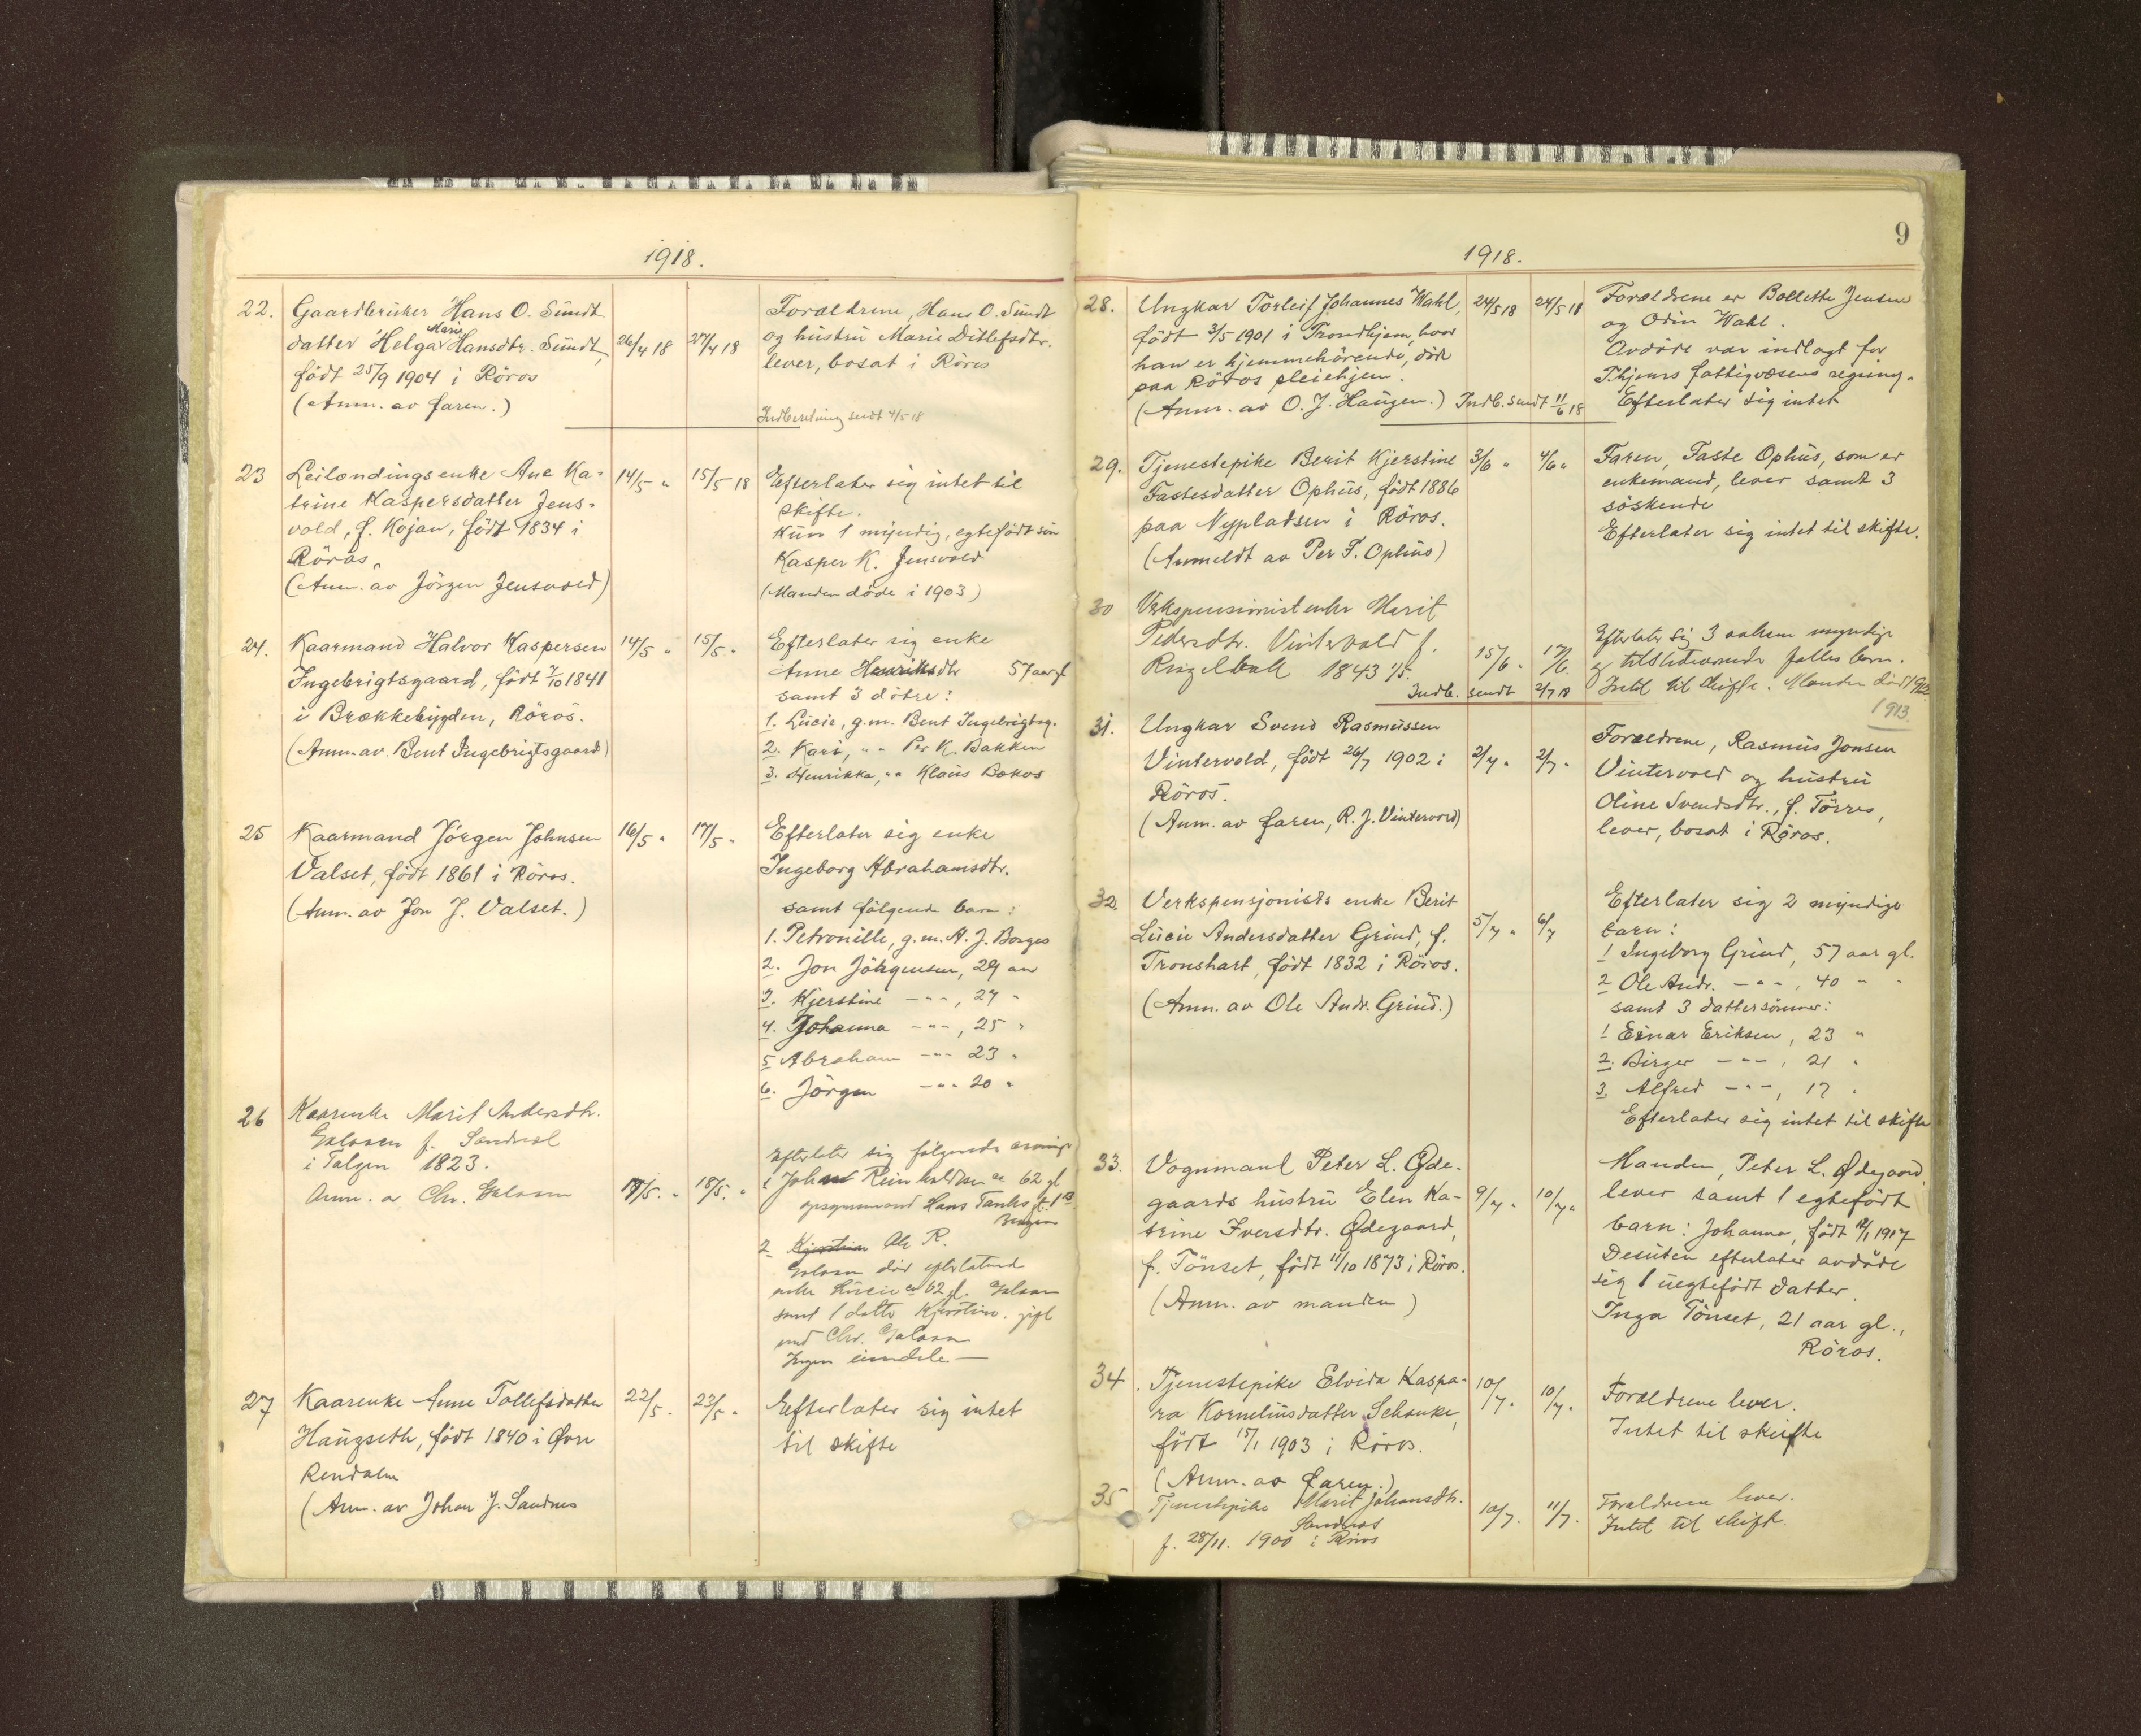 1918.
22. Gaardbruker Hans O. Sundt
datter Helga Marie Hansdtr. Sundt, 26/4 18 27/4 18
født 25/9 1904 i Röros
(Anm. av faren.)
Forældrene, Hans O. Sundt
og hustru Marie Ditlefsdtr.
lever, bosat i Röros
Indberetning sendt 4/5 18
23 Leilændingsenke Ane Ka-
trine Kaspersdatter Jens-
vold, f. Kojan, født 1834 i
Röros.
(Anm. av Jörgen Jensvold)
14/5 " 15/5 18
Efterlater sig intet til
skifte.
Kun 1 myndig, egtefødt sön
Kasper K. Jensvold
(Manden döde i 1903)
24. Kaarmand Halvor Kaspersen
Ingebrigtsgaard, født 7/10 1841
i Brækkebygden, Röros.
(Anm. av Bent Ingebrigtsgaard)
14/5 " 15/5 "
Efterlater sig enke
Anne Henriksdtr 57 aar gl
samt 3 dötre:
1. Lucie, g.m. Bent Ingebrigtsg.
2. Kari, " " Per K. Bakken
3. Henrikka, " " Klaus Bakos
25 Kaarmand Jörgen Johnsen
Valset, født 1861 i Röros.
(Anm. av Jon J. Valset.)
16/5 " 17/5 "
Efterlater sig enke
Ingeborg Abrahamsdtr.
samt følgende barn:
1. Petronille, g.m. A. J. Borges
2. Jon Jörgensen, 29 aar
3. Kjerstine - " - , 27 "
4. Johanna - " - , 25 "
5 Abraham - " - 23 "
6. Jörgen - " - 20 "
26 Kaarenke Marit Andersdtr.
Galaaen f. Sandnal
i Tolgen 1823.
Anm. av Chr. Galaaen
17/5. " 18/5. "
Efterlater sig følgende arvinger
1 Johan Reinholdsen ca 62 gl
opsynsmand Hans Tanks gt. 1
Bergen
2 Kjerstine Ole R.
Galaaen död efterlatend
enke Lucie ca 62 gl. Galaaen
samt 1 datter Kjerstine. gift
med Chr. Galaaen
Ingen eiendele.
27 Kaarenke Anne Tollefsdatter
Haugseth, født 1840 i Øvre
Rendalen
(Anm. av Johan J. Sandnes
22/5. 23/5. "
Efterlater sig intet
til skifte
9
1918.
28. Ungkar Torleif Johannes Wahl,
født 3/5 1901 i Trondhjem, hvor
han er hjemmehörende, död
paa Röros pleiehjem.
(Anm. av O. J. Haugen.) Indb. sendt 11/6 18
24/5 18 24/5 18
Forældrene er Bollette Jensen
og Odin Wahl.
Avdöde var indlagt for
T.hjems fattigvæsens regning.
Efterlater sig intet
29. Tjenestepike Berit Kjerstine
Fastesdatter Ophus, født 1886
paa Nypladsen i Röros.
(Anmeldt av Per F. Ophus)
3/6 " 4/6 "
Faren, Faste Ophus, som er
enkemand, lever samt 3
söskende
Efterlater sig intet til skifte.
30 Verkspensionistenke Marit
Pedersdtr. Vintervold f.
Ringelball 1843 1/5.
15/6 " 17/6.
Indb. sendt 2/7 18
Efterlater sig 3 voksne myndige
og tilstedeværende fælles barn.
Intet til skifte. Manden död 1912
1913.
31. Ungkar Svend Rasmussen
Vintervold, født 26/7 1902 i
Röros.
(Anm. av faren, R. J. Vintervold)
2/7 " 2/7 "
Forældrene, Rasmus Jonsen
Vintervold og hustru
Oline Svendsdtr., f. Törres,
lever, bosat i Röros.
32. Verkspensjonists enke Berit
Lucie Andersdatter Grind, f.
Tronshart, født 1832 i Röros.
(Anm. av Ole Andr. Grind.)
5/7 " 6/7
Efterlater sig 2 myndige
barn:
1 Ingeborg Grind, 57 aar gl.
2 Ole Andr. - " - , 40 " "
samt 3 dattersönner:
1 Einar Eriksen, 23 "
2. Birger - " - , 21 "
3. Alfred - " - , 17 "
Efterlater sig intet til skifte
33. Vognmand Peter L. Øde-
gaards hustru Elen Ka-
trine Iversdtr. Ødegaard,
f. Tönset, født 11/10 1873 i Röros.
(Anm. av manden)
9/7 " 10/7 "
Manden, Peter L. Ødegaard,
lever samt 1 egtefødt
barn: Johanna, født 12/1 1917
Desuten efterlater avdöde
sig 1 uegtefødt datter
Inga Tönset, 21 aar gl.,
Röros.
34. Tjenestepike Elvida Kaspa-
ra Korneliusdatter Schanke,
født 15/1 1903 i Röros.
(Anm. av faren.)
10/7. 10/7.
Forældrene lever.
Intet til skifte
35 Tjenestepike Marit Johansdtr.
Sandnes
f. 28/11. 1900 i Röros
10/7. 11/7.
Forældrene lever.
Intet til skifte.